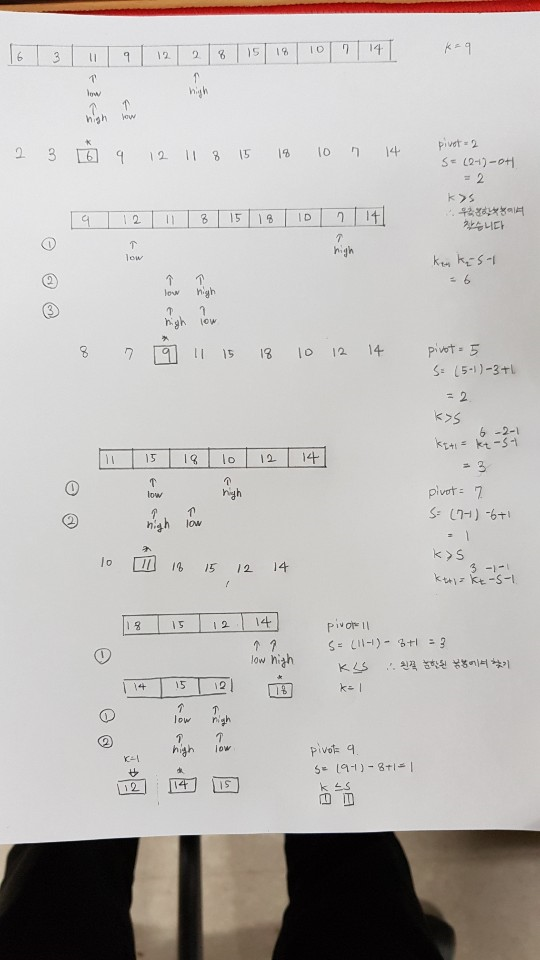 6 3 11 9 12 2 8 15 18 10 7 14 k=9
↑ ↑
low high
↑ ↑
high low
*
2 3 6 9 12 11 8 15 18 10 7 14
pivot=2
S= (2-1)-0+1
= 2
k>S
∴ 우측분할부분에서
찾습니다
9 12 11 8 15 18 10 7 14
① ↑ ↑
low high
② ↑ ↑
low high
③ ↑ ↑
high low
kt+1 kt-S-1
= 6
*
8 7 9 11 15 18 10 12 14
pivot= 5
S= (5-1)-3+1
= 2
k>S
6 -2-1
kt+1= kt-S-1
= 3
11 15 18 10 12 14
① ↑ ↑
low high
② ↑ ↑
high low
*
10 11 18 15 12 14
pivot= 7
S= (7-1)-6+1
= 1
k>S
3 -1-1
kt+1= kt-S-1
18 15 12 14
① ↑ ↑
low high
pivot=11
S= (11-1)- 8+1 = 3
k≤S ∴ 왼쪽 분할된 부분에서 찾기
k=1
*
14 15 12 18
① ↑ ↑
low high
② ↑ ↑
high low
k=1
*
12 14 15
pivot= 9
S= (9-1)-8+1=1
k ≤S
1 1